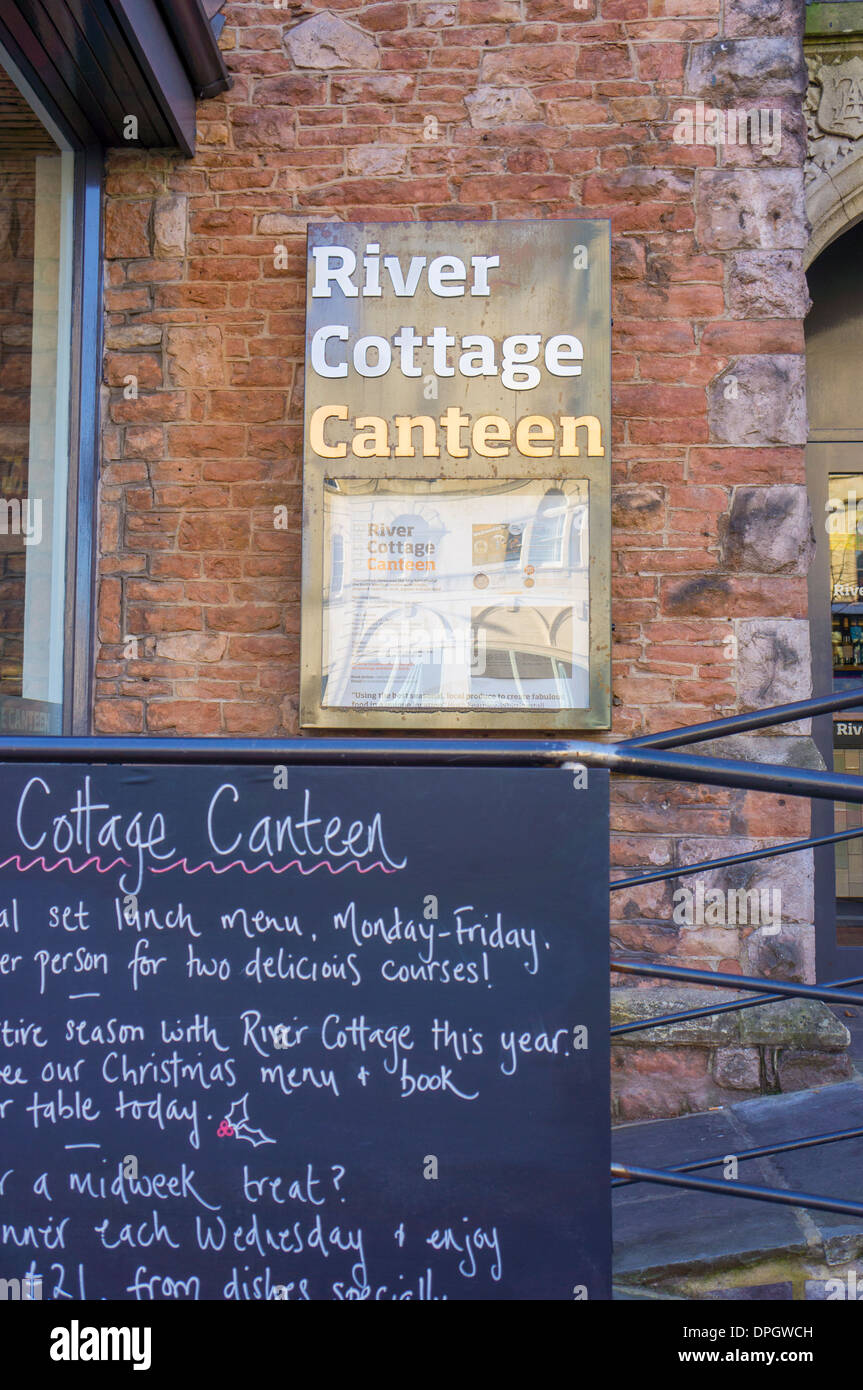 River
Cottage
Canteen
River
Cottage
Canteen
"Using the best seasonal, local produce to create fabulous
CANTEEN
River
River
Cottage Canteen
al set lunch menu, Monday-Friday.
er person for two delicious courses!
tive season with River Cottage this year.
ee our Christmas menu + book
r table today.
r a midweek treat?
nner each Wednesday + enjoy
£21. from dishes specially
alamy
Image ID: DPGWCH
www.alamy.com